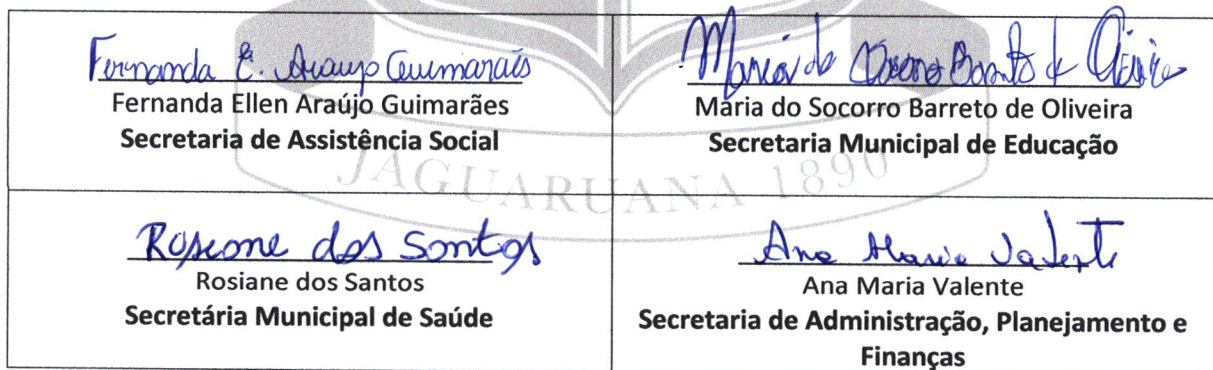 Fernanda E. Araujo Guimarães
Fernanda Ellen Araújo Guimarães
Secretaria de Assistência Social
Maria do Socorro Barreto de Oliveira
Maria do Socorro Barreto de Oliveira
Secretaria Municipal de Educação
JAGUARUANA 1890
Roseane dos Santos
Rosiane dos Santos
Secretária Municipal de Saúde
Ana Maria Valente
Ana Maria Valente
Secretaria de Administração, Planejamento e
Finanças